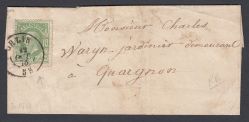 Monsieur Charles
Waryn, jardinier demeurant
à Quargnon